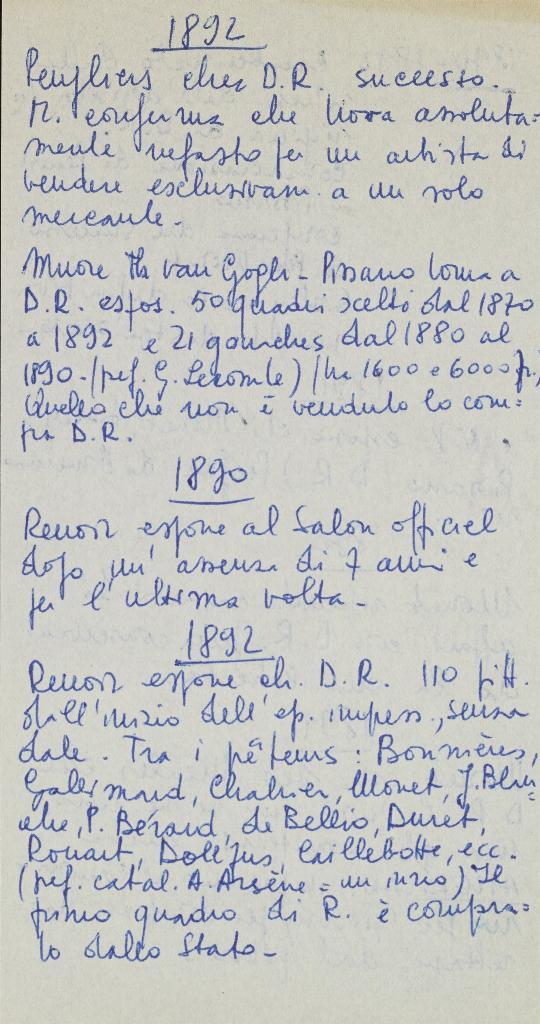 1892
Peupliers chez D.R. successo.
M. conferma che trova assoluta=
mente nefasto per un artista di
vendere esclusivam. a un solo
mercante -
Muore Th van Gogh - Pissarro torna a
D.R. espos. 50 quadri scelti dal 1870
a 1892 e 21 gouaches dal 1880 al
1890 - (pref. G. Lecomte) (tra 1600 e 6000 fr.)
Quello che non è venduto lo com=
pra D.R.
1890
Renoir espone al Salon officiel
dopo un' assenza di 7 anni e
per l'ultima volta -
1892
Renoir espone ch. D.R. 110 pitt.
dall'inizio dell'ep. impress., senza
date. Tra i prêteurs: Bonnières,
Gallimard, Chabrier, Monet, J. Blan=
che, P. Bérard, de Bellio, Duret,
Rouart, Dollfus, Caillebotte, ecc.
(pref. catal. A. Arsène = un inizio) Il
primo quadro di R. è compra=
to dallo Stato -